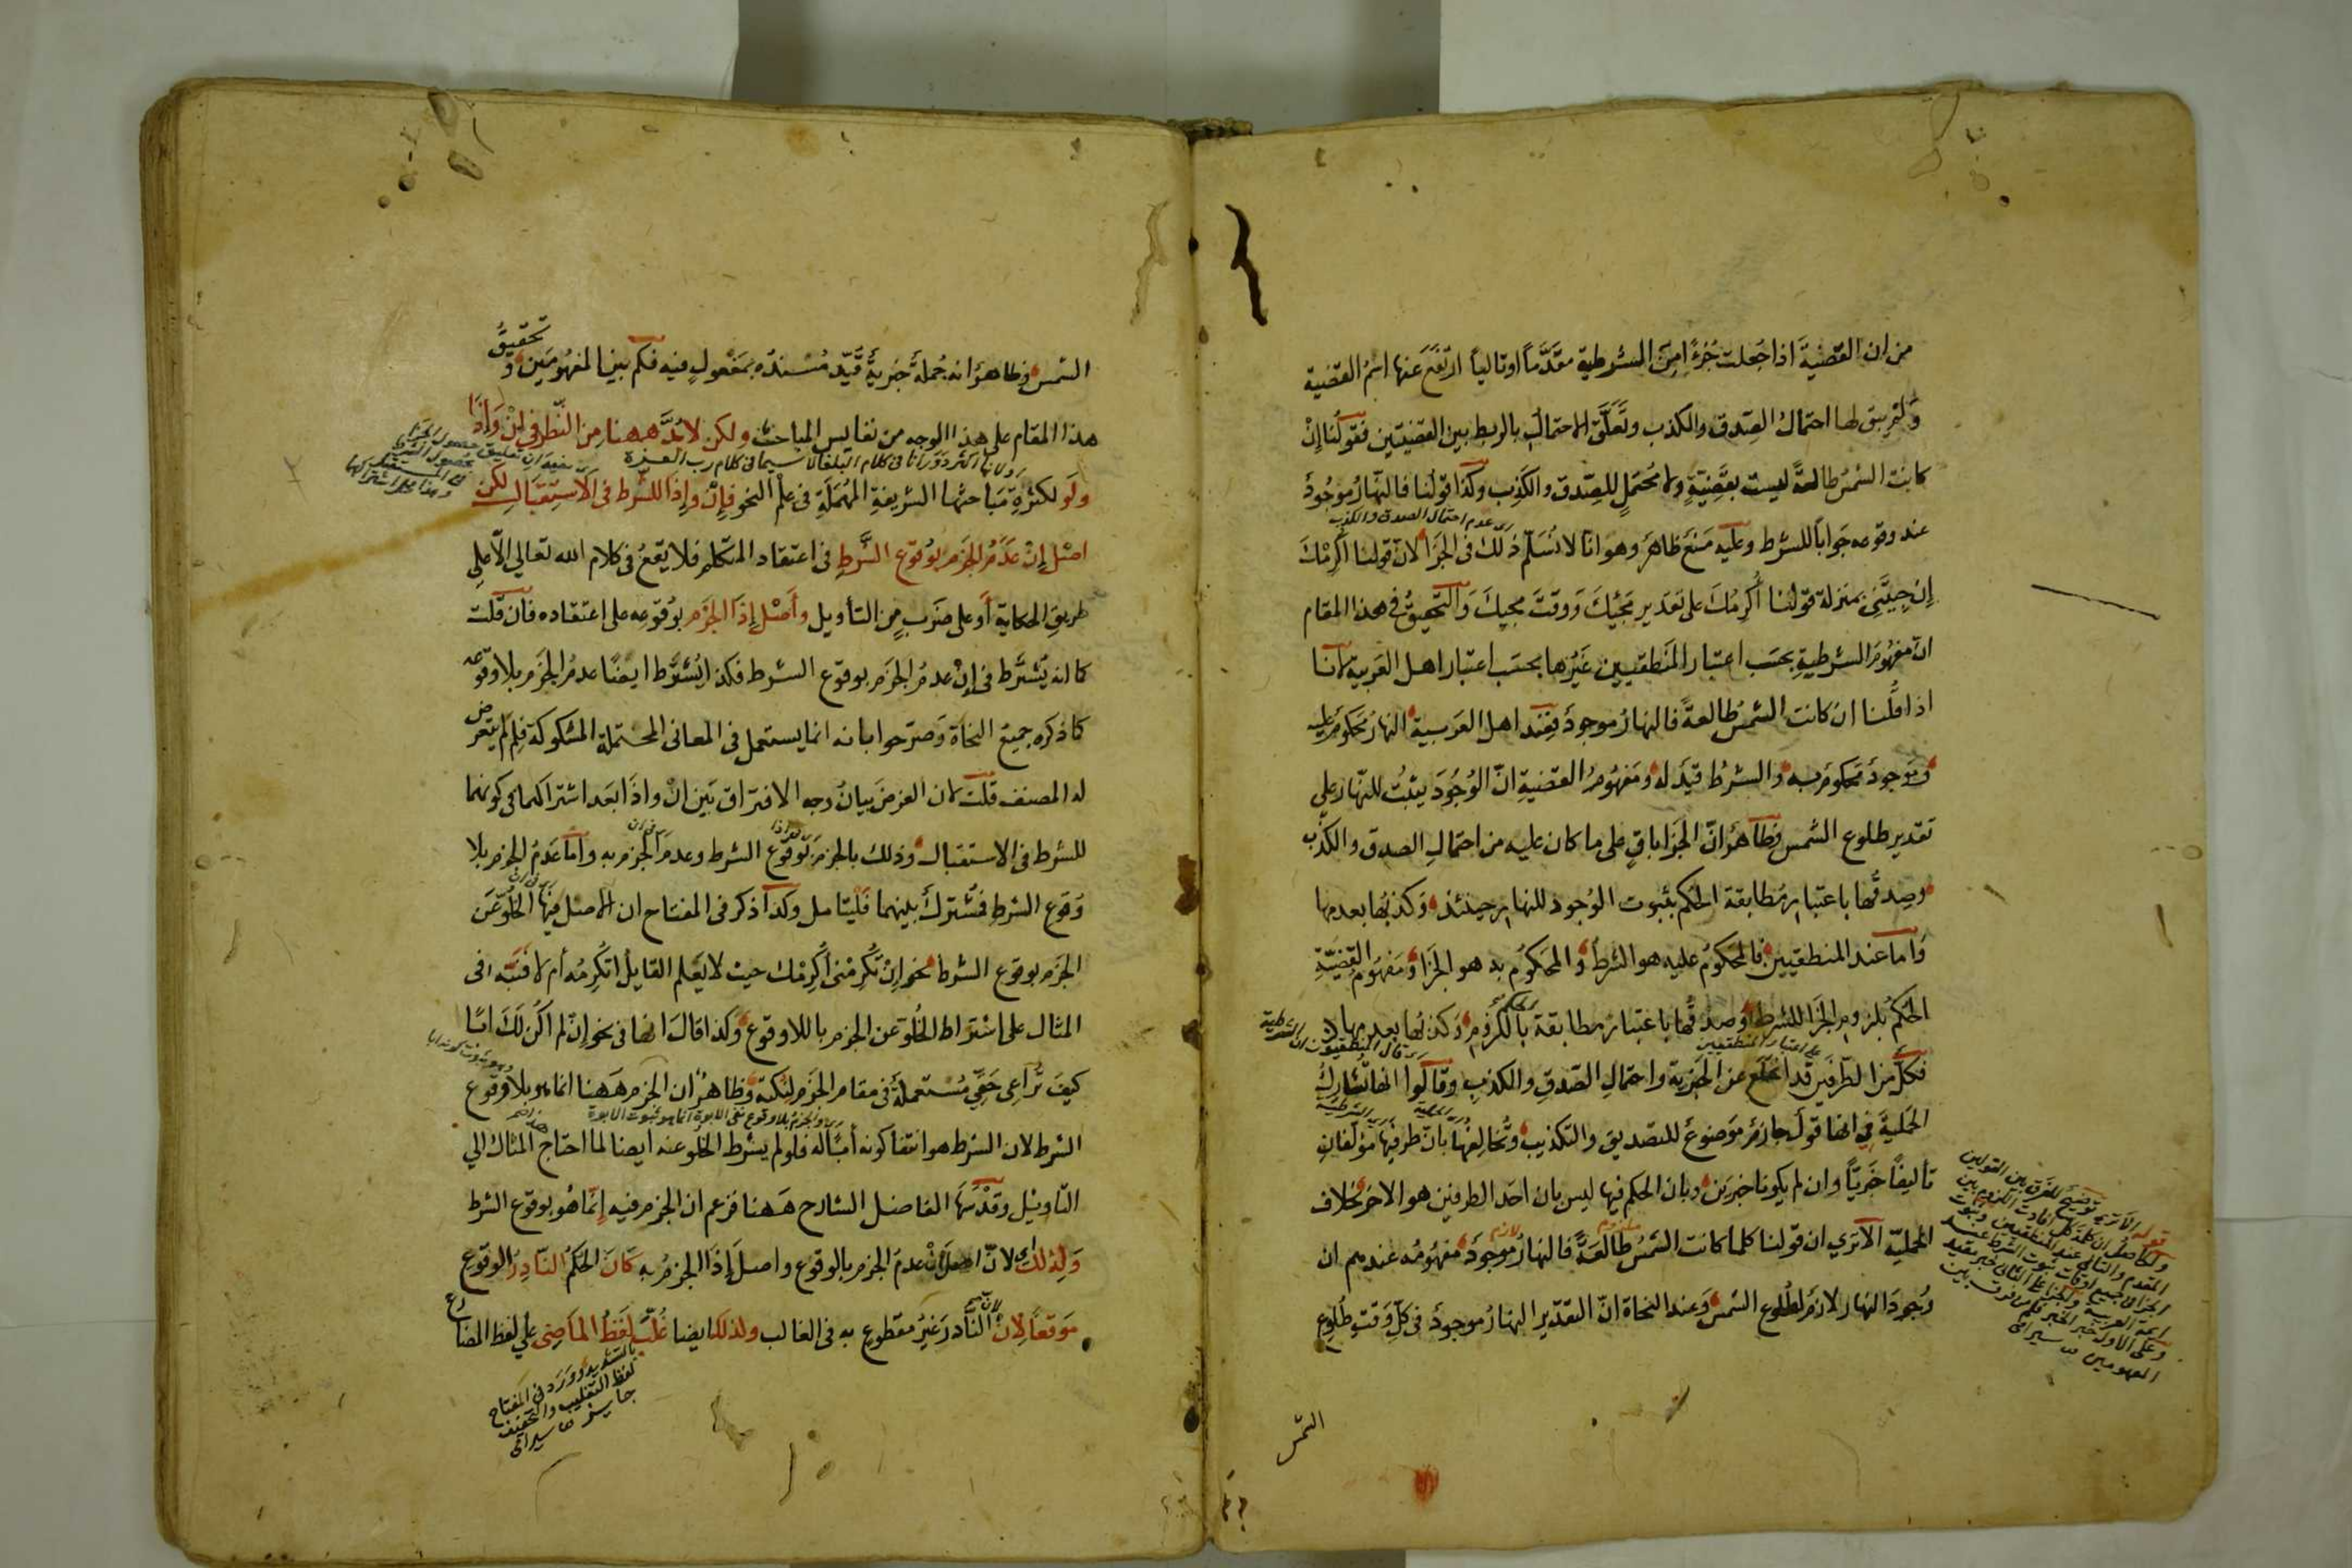 من ان القضية اذا جعلت جزءا من الشرطية مقدما او تاليا ارتفع عنها اسم القضية
ولم يبق لها احتمال الصدق والكذب وتعلق الاحتمال بالربط بين القضيتين فقولنا إن
كانت الشمس طالعة ليست بقضية ولا محتمل للصدق والكذب وكذا قولنا فالنهار موجود
عند وقوعه جوابا للشرط وعليه منع ظاهر وهو انا لا نسلم ذلك في الجزا لان قولنا اكرمك
اى عدم احتمال الصدق والكذب
إن جيتنى بمنزلة قولنا أكرمك على تقدير مجيئك ووقت مجيك والتحقيق في هذا المقام
ان مفهوم الشرطية بحسب اعتبار المنطقيين غيرها بحسب اعتبار اهل العربية لانا
اذا قلنا ان كانت الشمس طالعة فالنهار موجود فعند اهل العربية النهار محكوم عليه
وموجود محكوم به والشرط قيد له ومفهوم القضية ان الوجود يثبت للنهار على
تقدير طلوع الشمس فظاهر ان الجزا باق على ما كان عليه من احتمال الصدق والكذب
وصدقها باعتبار مطابقة الحكم بثبوت الوجود للنهار حينئذ وكذبها بعدمها
واما عند المنطقيين فالمحكوم عليه هو الشرط والمحكوم به هو الجزا ومفهوم القضية
الحكم بلزوم الجزا للشرط وصدقها باعتبار مطابقة الحكم باللزوم وكذبها بعدمها
فكل من الطرفين قد انخلع عن الخبرية واحتمال الصدق والكذب وقالوا انها تشارك
على اعتبار المنطقيين
اى قال المنطقيون ان الشرطية
الحملية في انها قول جازم موضوع للتصديق والتكذيب وتخالفها بان طرفيها مؤلفان
تأليفا خبريا وان لم يكونا خبرين وبان الحكم فيها ليس بان احد الطرفين هو الاخر بخلاف
الحملية الا ترى ان قولنا كلما كانت الشمس طالعة فالنهار موجود مفهومه عندهم ان
ملزوم
لازم
وجود النهار لازم لطلوع الشمس وعند النحاة ان التقدير النهار موجود في كل وقت طلوع
الشمس
قوله الا ترى توضيح للفرق بين القولين
المفهومين س سيرامى
الشمس وظاهر انه جملة خبرية قيد مسنده بمفعول فيه فكم بين المفهومين وتحقيق
هذا المقام على هذا الوجه من نفايس المباحث ولكن لا بد ههنا من النظر في إن وإذا
ولانها اكثر دورانا في كلام البلغا لا سيما في كلام رب العزة
ولو لكثرة مباحثها الشريفة المهملة في علم النحو فإن وإذا للشرط في الاستقبال لكن
اصل إن عدم الجزم بوقوع الشرط في اعتقاد المتكلم فلا يقع في كلام الله تعالى الا على
طريق الحكاية أو على ضرب من التأويل وأصل إذا الجزم بوقوعه على اعتقاده فان قلت
كما انه يشترط في إن عدم الجزم بوقوع الشرط فكذا يشترط ايضا عدم الجزم بلا وقوعه
كما ذكره جميع النحاة وصرحوا بانه انما يستعمل في المعانى المحتملة المشكوكة فلم لم يتعرض
له المصنف قلت لان الغرض بيان وجه الافتراق بين ان واذا بعد اشتراكهما في كونهما
للشرط في الاستقبال وذلك بالجزم بوقوع الشرط وعدم الجزم به واما عدم الجزم بلا
وقوع الشرط فمشترك بينهما فليتامل وكذا ذكر في المفتاح ان الاصل فيها الخلو عن
الجزم بوقوع الشرط نحو إن تكرمنى أكرمك حيث لا يعلم القايل اتكرمه أم لا فنبه في
المثال على اشتراط الخلو عن الجزم باللا وقوع وكذا قال انها في نحو إن لم اكن لك ابا
كيف تراعى حقى مستعملة في مقام الجزم لنكتة وظاهر ان الجزم ههنا انما هو بلا وقوع
اى والجزم بلا وقوع نفى الابوة انما هو بثبوت الابوة
الشرط لان الشرط هو انتفا كونه أباله فلو لم يشرط الخلو عنه ايضا لما احتاج المثال الى
التاويل وقد سها الفاضل الشارح ههنا فزعم ان الجزم فيه إنما هو بوقوع الشرط
ولذلك لان اصل إن عدم الجزم بالوقوع واصل إذا الجزم به كان الحكم النادر الوقوع
موقعا لإن لان النادر غير مقطوع به في الغالب ولذلك ايضا غلب لفظ الماضى على لفظ المضارع
بالتشديد وورد في المفتاح
لفظ التغليب والتخفيف
جايز س سيرامى